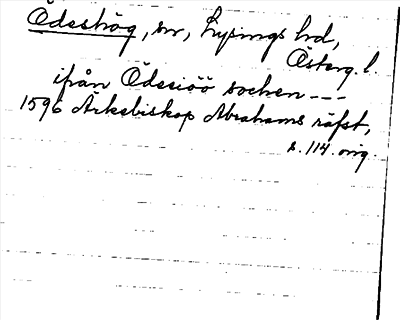 Ödeshög, sn, Lysings hd,
Österg. l.
ifrån Ödesiöö sochen ---
1596 Ärkebiskop Abrahams räfst,
s. 114. orig.